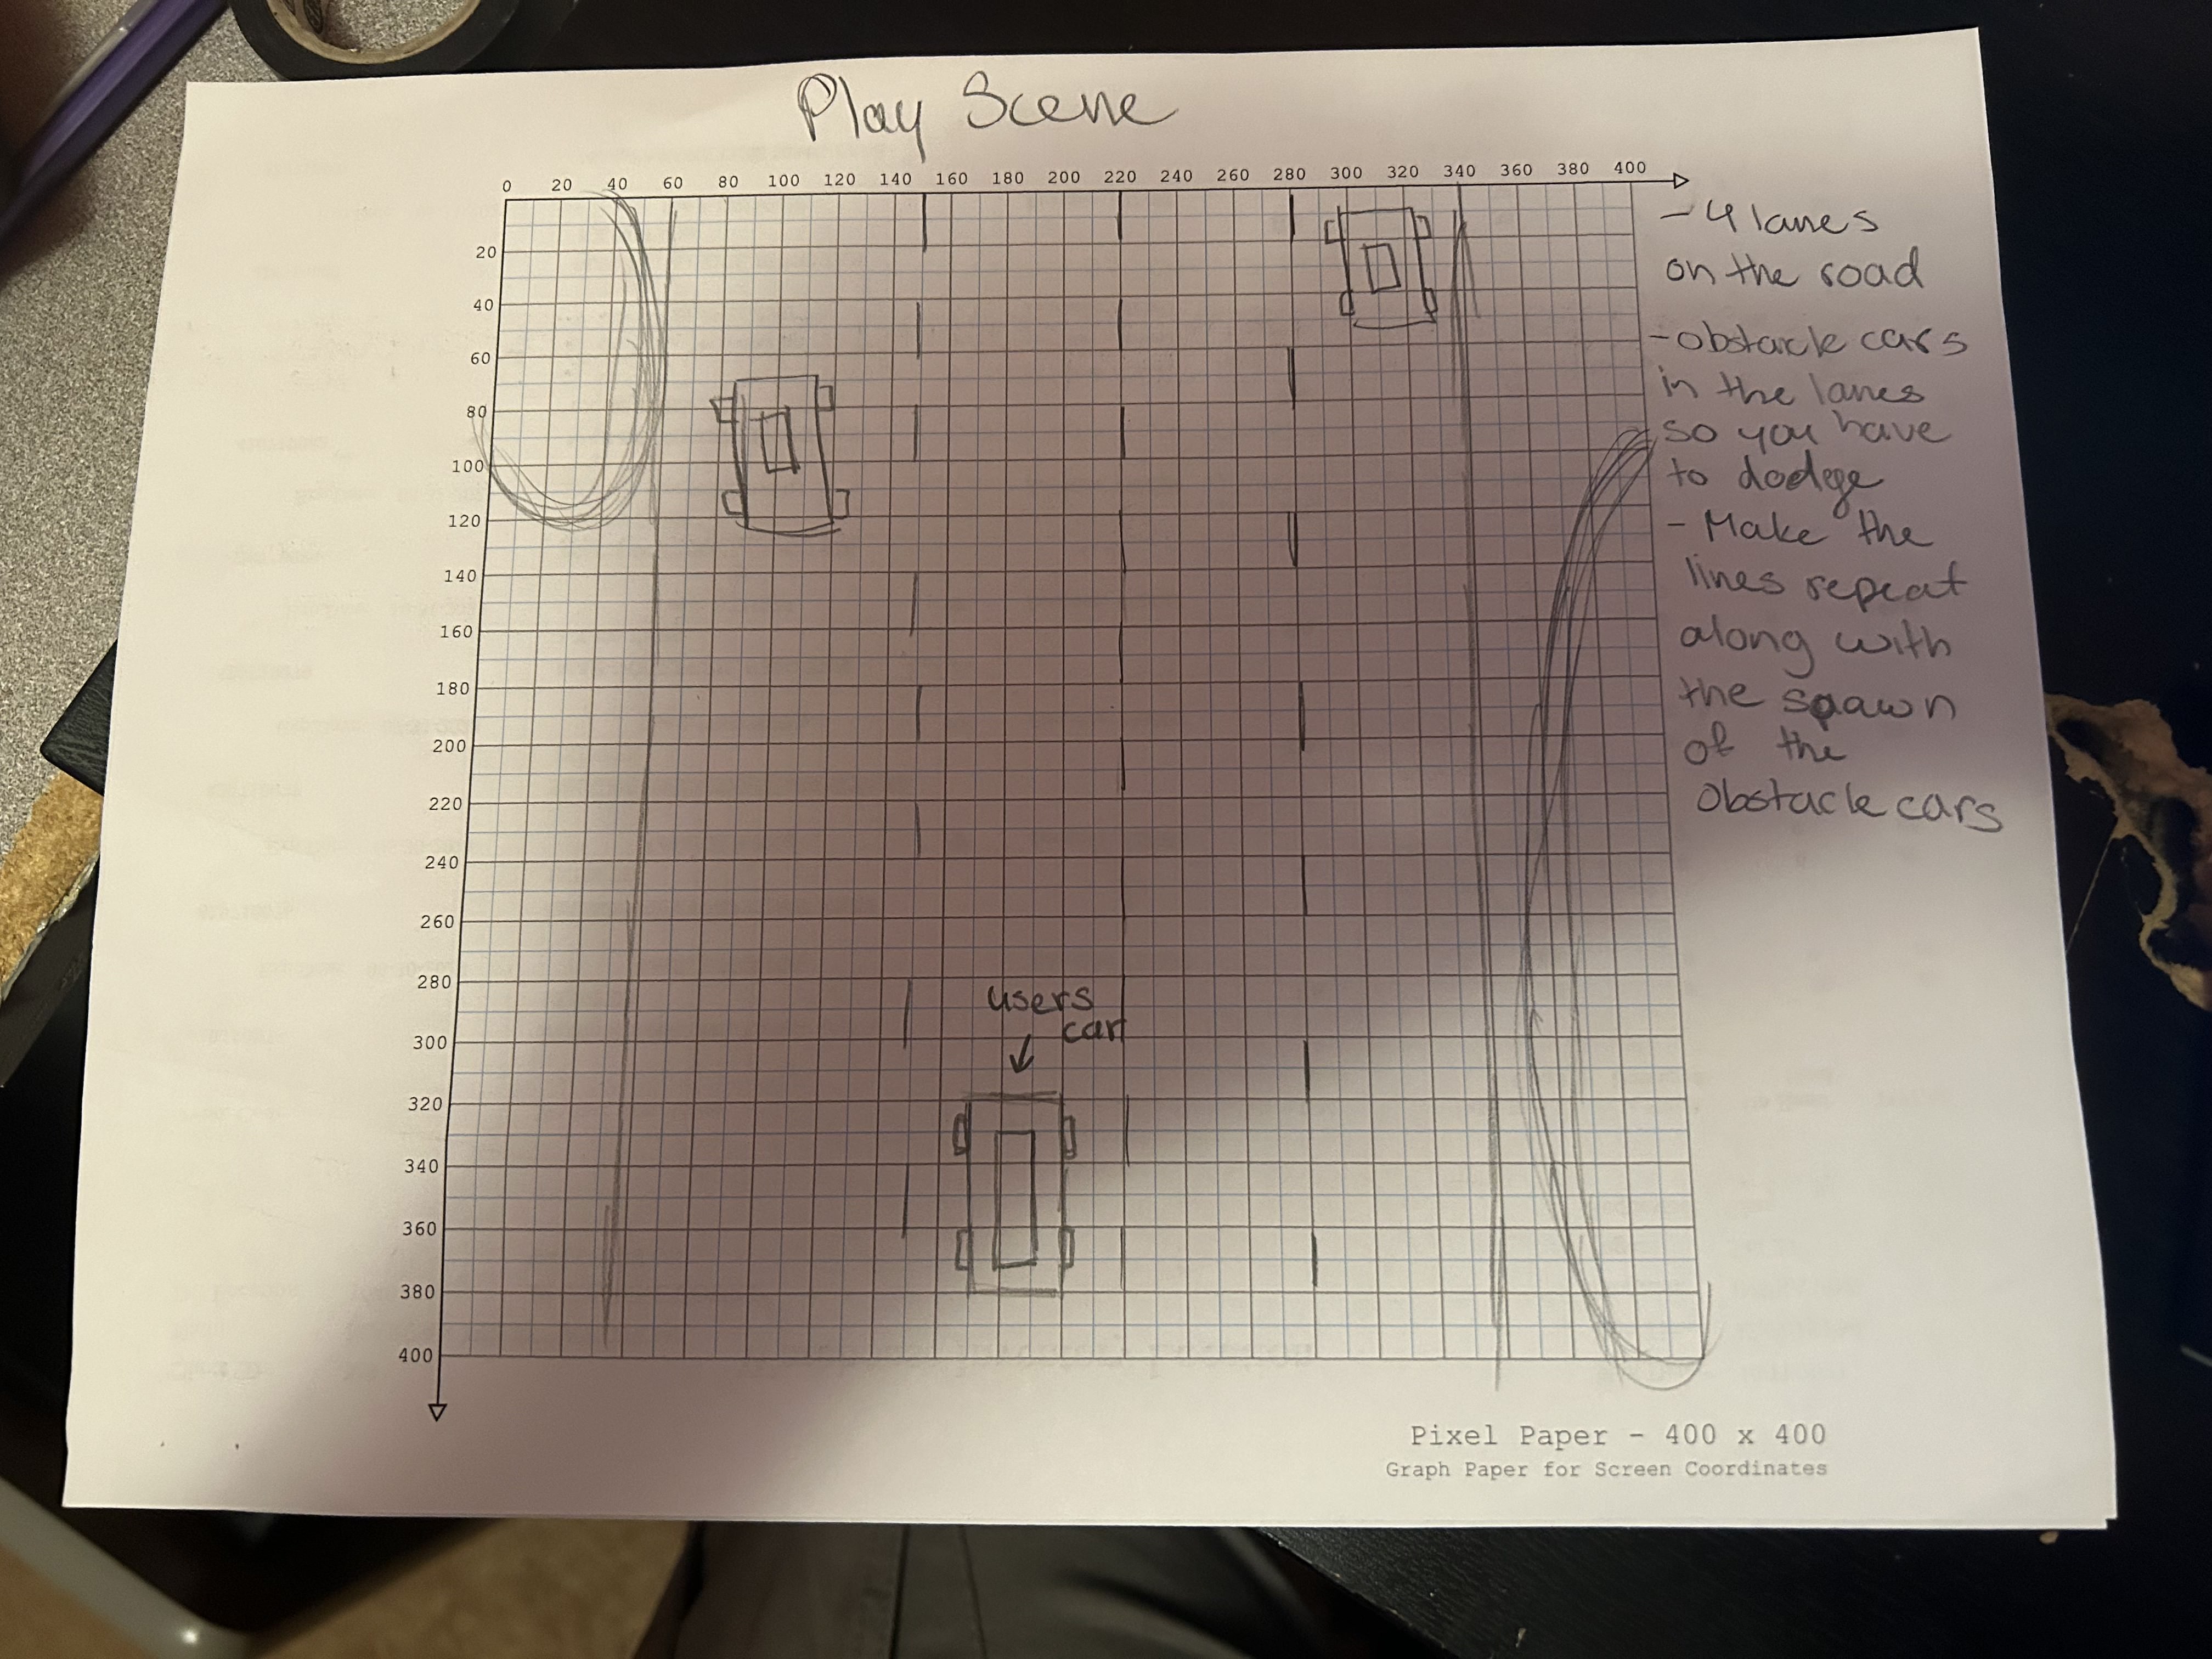 Play Scene
0 20 40 60 80 100 120 140 160 180 200 220 240 260 280 300 320 340 360 380 400
20
40
60
80
100
120
140
160
180
200
220
240
260
280
300
320
340
360
380
400
users
car
- 4 lanes
on the road
- obstacle cars
in the lanes
so you have
to dodge
- Make the
lines repeat
along with
the spawn
of the
obstacle cars
Pixel Paper - 400 x 400
Graph Paper for Screen Coordinates